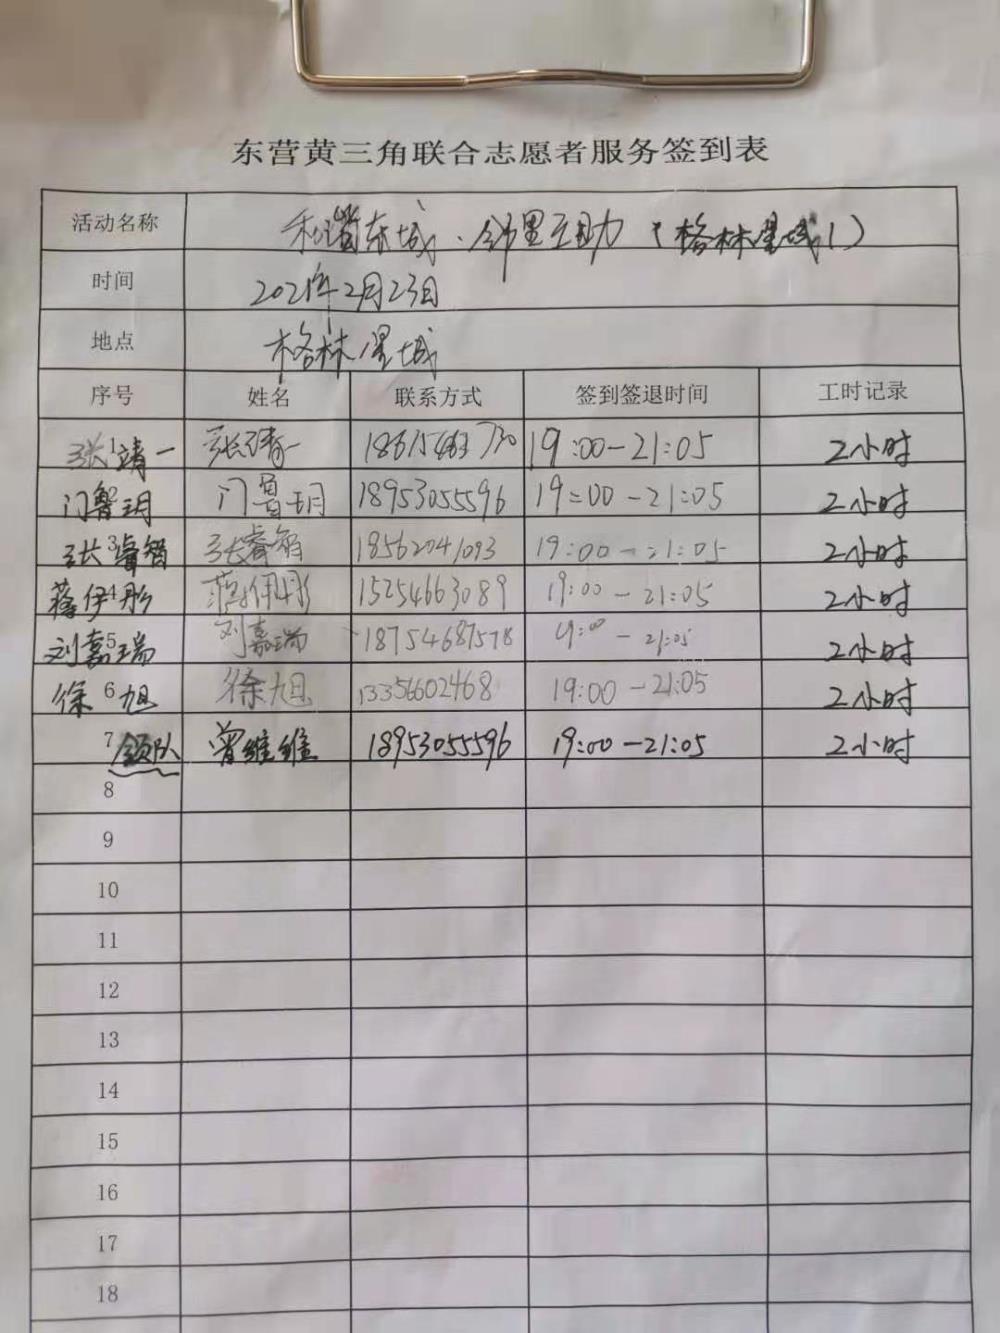 东营黄三角联合志愿者服务签到表
活动名称 和谐东城·邻里互助（格林星城1）
时间 2021年2月23日
地点 格林星城
序号 姓名 联系方式 签到签退时间 工时记录
1 张靖一 张靖一 19:00-21:05 2小时
2 门鲁玥 门鲁玥 18953055596 19:00-21:05 2小时
3 张睿智 张睿智 18562041093 19:00-21:05 2小时
4 蒋伊彤 蒋伊彤 15254663089 19:00-21:05 2小时
5 刘嘉瑞 刘嘉瑞 18754687578 19:00-21:05 2小时
6 徐旭 徐旭 13356602468 19:00-21:05 2小时
7 领队 曾维维 18953055596 19:00-21:05 2小时
8
9
10
11
12
13
14
15
16
17
18